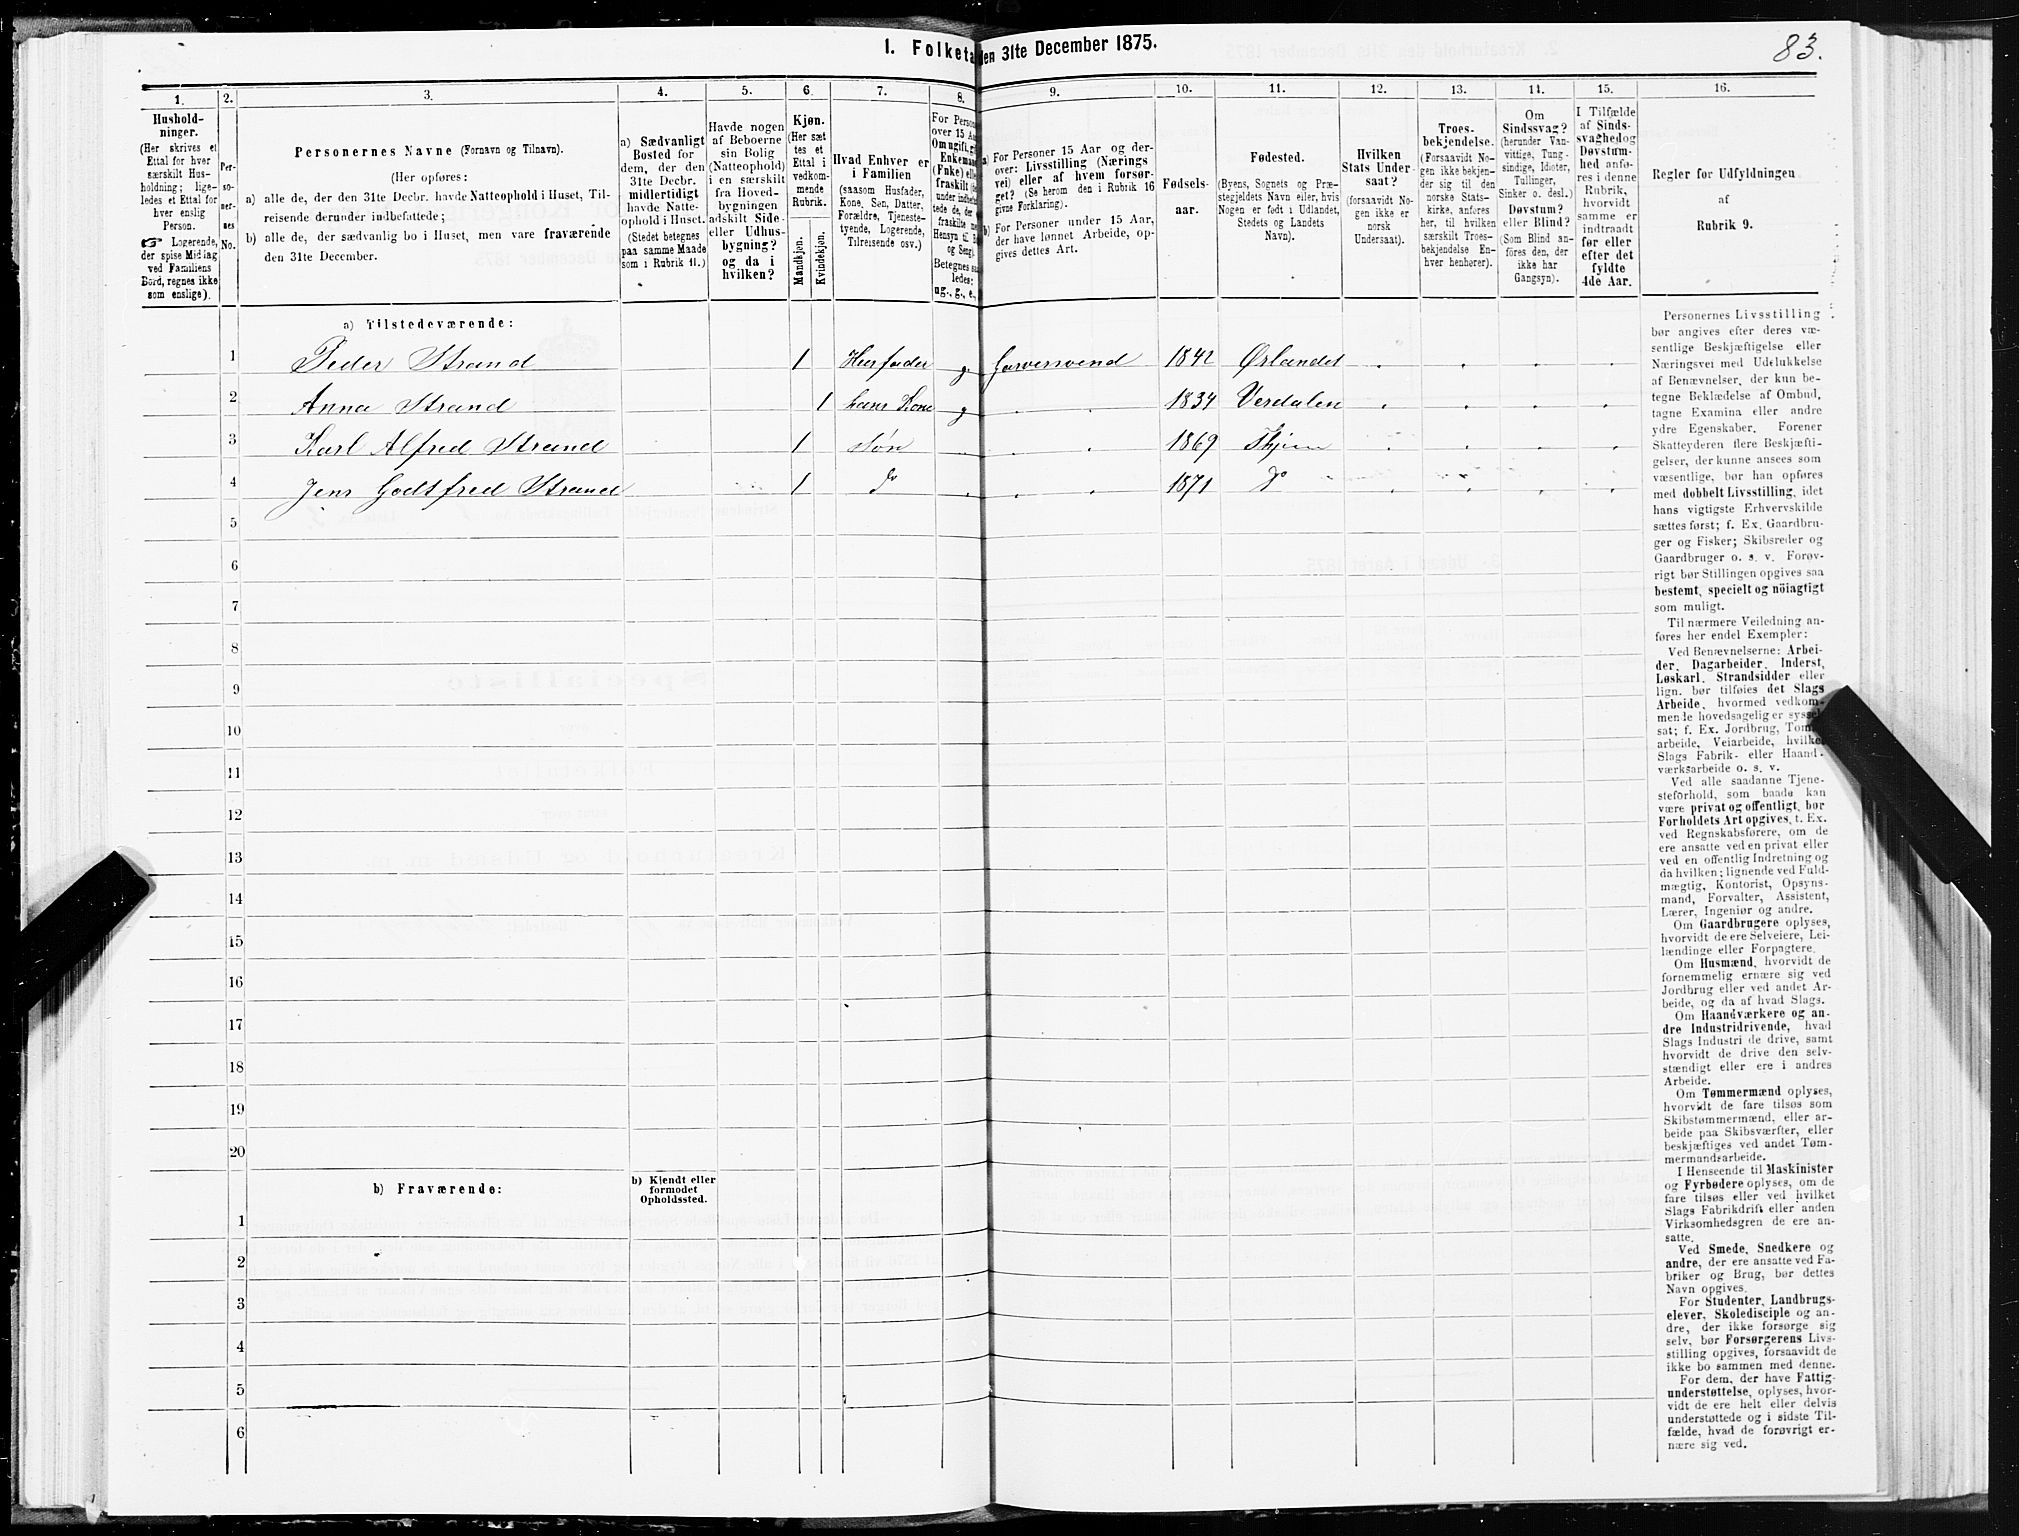 1. Folketa
den 31te December 1875.
83.
1.
2.
3.
4.
5.
6.
7.
8.
9.
10.
11.
12.
13.
14.
15.
16.
Hushold-
ninger.
(Her skrives et
Ettal for hver
særskilt Hus-
holdning; lige-
ledes et Ettal for
hver enslig
Person.
☞ Logerende,
der spise Middag
ved Familiens
Bord, regnes ikke
som enslige).
Per-
so-
ner-
nes
No.
Personernes Navne (Fornavn og Tilnavn).
(Her opføres:
a) alle de, der den 31te Decbr. havde Natteophold i Huset, Til-
reisende derunder indbefattede;
b) alle de, der sædvanlig bo i Huset, men vare fraværende
den 31te December.
a) Sædvanligt
Bosted for
dem, der den
31te Decbr.
midlertidigt
havde Natte-
ophold i Huset.
(Stedet betegnes
paa samme Maade
som i Rubrik 11.)
Havde nogen
af Beboerne
sin Bolig
(Natteophold)
i en særskilt
fra Hoved-
bygningen
adskilt Side-
eller Udhus-
bygning?
og da i
hvilken?
Kjøn.
(Her sæt-
tes et
Ettal i
vedkom-
mende
Rubrik.
Mandkjøn.
Kvindekjøn.
Hvad Enhver er
i Familien
(saasom Husfader,
Kone, Søn, Datter,
Forældre, Tjeneste-
tyende, Logerende,
Tilreisende osv.)
For Person
over 15 Aa
Om ugift, gi
Enkema
(Fnke) elle
fraskilt (de
under indbefa
tede de, der
fraskilte m
Hensyn til B
og Seng).
Betegnes sa
ledes:
ug., g., e.,
a) For Personer 15 Aar og der-
over: Livsstilling (Nærings
vei) eller af hvem forsør-
get? (Se herom den i Rubrik 16
givne Forklaring).
b) For Personer under 15 Aar,
der have lønnet Arbeide, op-
gives dettes Art.
Fødsels-
aar.
Fødested.
(Byens, Sognets og Præ-
stegjeldets Navn eller, hvis
Nogen er født i Udlandet,
Stedets og Landets
Navn).
Hvilken
Stats Under-
saat?
(forsaavidt No-
gen ikke er
norsk
Undersaat).
Troes-
bekjendelse.
(Forsaavidt No-
gen ikke bekjen-
der sig til den
norske Stats-
kirke, anføres
her, til hvilken
særskilt Troes-
bekjendelse En-
hver henhører).
Om
Sindssvag?
(herunder Van-
vittige, Tung-
sindige, Idioter,
Tullinger,
Sinker o. desl.)
Døvstum?
eller Blind?
(Som Blind an-
føres den, der
ikke har
Gangsyn).
I Tilfælde
af Sinds-
svaghed og
Døvstum-
hed anfø-
res i denne
Rubrik,
hvorvidt
samme er
indtraadt
før eller
efter det
fyldte
4de Aar.
Regler for Udfyldningen
af
Rubrik 9.
a) Tilstedeværende:
1 Peder Strand 1 Husfader g Garversvend 1842 Ørlandet
2 Anna Strand 1 hans Kone g 1834 Verdalen
3 Karl Alfred Strand 1 Søn 1869 Thjem
4 Jens Godtfred Strand 1 do 1871 do
5
6
7
8
9
10
11
12
13
14
15
16
17
18
19
20
b) Fraværende:
b) Kjendt eller
formodet
Opholdssted.
1
2
3
4
5
6
Personernes Livsstilling
bør angives efter deres væ-
sentlige Beskjæftigelse eller
Næringsvei med Udelukkelse
af Benævnelser, der kun be-
tegne Beklædelse af Ombud,
tagne Examina eller andre
ydre Egenskaber. Forener
Skatteyderen flere Beskjæfti-
gelser, der kunne ansees som
væsentlige, bør han opføres
med dobbelt Livsstilling, idet
hans vigtigste Erhvervskilde
sættes først; f. Ex. Gaardbru-
ger og Fisker; Skibsreder og
Gaardbruger o. s. v. Forøv-
rigt bør Stillingen opgives saa
bestemt, specielt og nöiagtigt
som muligt.
Til nærmere Veiledning an-
føres her endel Exempler:
Ved Benævnelserne: Arbei-
der, Dagarbeider, Inderst,
Løskarl, Strandsidder eller
lign. bør tilføies det Slags
Arbeide, hvormed vedkom-
mende hovedsagelig er syssel-
sat; f. Ex. Jordbrug, Tøm-
arbeide, Veiarbeide, hvilke
Slags Fabrik- eller Haand-
værksarbeide o. s. v.
Ved alle saadanne Tjene-
steforhold, som baade kan
være privat og offentligt, bør
Forholdets Art opgives, t. Ex.
ved Regnskabsførere, om de
ere ansatte ved en privat eller
ved en offentlig Indretning og
da hvilken; lignende ved Fuld-
mægtig, Kontorist, Opsyns-
mand, Forvalter, Assistent,
Lærer, Ingeniør og andre.
Om Gaardbrugere oplyses,
hvorvidt de ere Selveiere, Lei-
lændinge eller Forpagtere.
Om Husmænd, hvorvidt de
fornemmelig ernære sig ved
Jordbrug eller ved andet Ar-
beide, og da af hvad Slags.
Om Haandværkere og an-
dre Industridrivende, hvad
Slags Industri de drive, samt
hvorvidt de drive den selv-
stændigt eller ere i andres
Arbeide.
Om Tømmermænd oplyses,
hvorvidt de fare tilsøs som
Skibstømmermænd, eller ar-
beide paa Skibsværfter, eller
beskjæftiges ved andet Tøm-
mermandsarbeide.
I Henseende til Maskinister
og Fyrbødere oplyses, om de
fare tilsøs eller ved hvilket
Slags Fabrikdrift eller anden
Virksomhedsgren de ere an-
satte.
Ved Smede, Snedkere og
andre, der ere ansatte ved Fa-
briker og Brug, bør dettes
Navn opgives.
For Studenter, Landbrugs-
elever, Skoledisciple og an-
dre, der ikke forsørge sig
selv, bør Forsørgerens Livs-
stilling opgives, forsaavidt de
ikke bo sammen med denne.
For dem, der have Fattig-
understøttelse, oplyses, hvor-
vidt de ere helt eller delvis
understøttede og i sidste Til-
fælde, hvad de forøvrigt er-
nære sig ved.